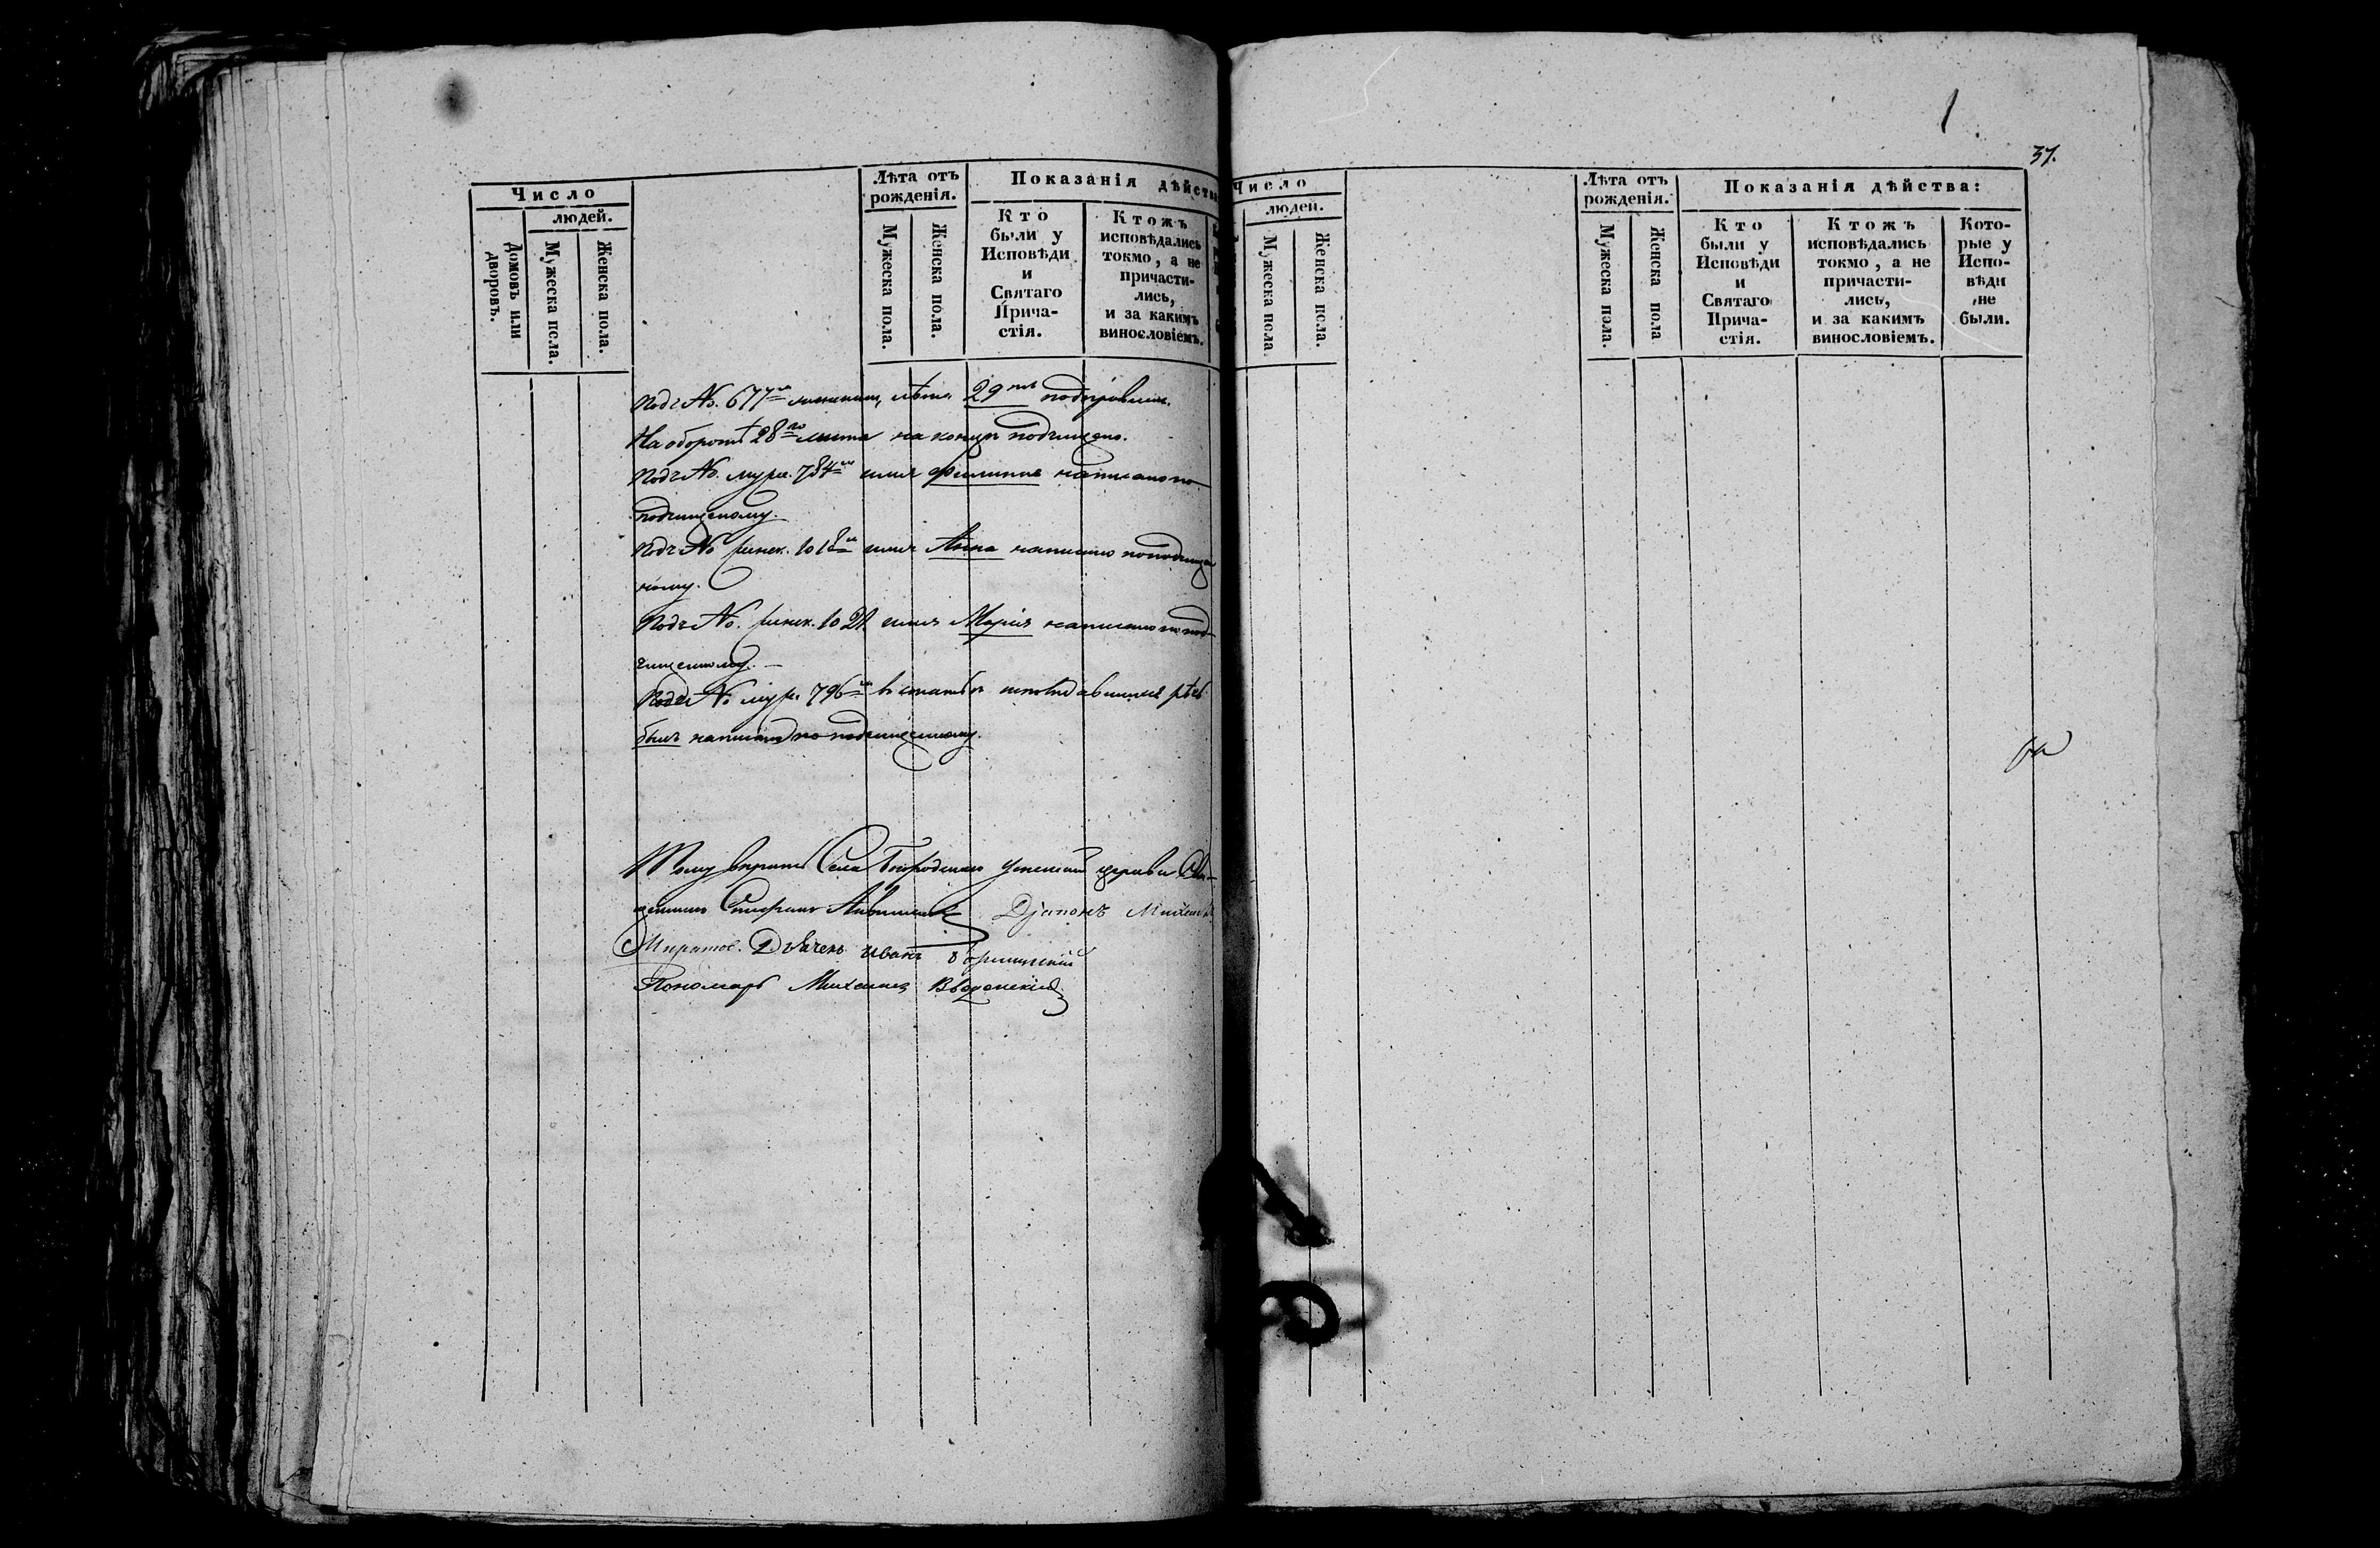 Число
людей.
Домовъ или дворовъ.
Мужеска пола.
Женска пола.
Лѣта отъ рожденія.
Мужеска пола.
Женска пола.
Показанія дѣйства
Кто
были у
Исповѣди
и
Святаго
Прича-
стія.
Ктожъ
исповѣдались
токмо, а не
причасти-
лись,
и за какимъ
винословіемъ.
Подъ No. 677мъ лѣта 29
На оборотѣ 28го листа на концѣ подчищено.
Подъ No. муж. 784мъ имя Филиппъ написано по
подчищеному.
Подъ No женск. имя Анна написано поподчищен
ному.
Подъ No. женск. 1021 имя Марія написано по под-
чищенному. —
Подъ No муж. 796мъ въ статьѣ исповѣдавшихся
былъ написано по подчищенному.
Села церкви Свя-
щенникъ Діаконъ Михаилъ
Дьячекъ Иванъ
Пономарь Михаилъ Введенскій
1
37.
Число
людей.
Мужеска пола
Женска пола.
Лѣта отъ рожденія.
Мужеска пола.
Женска пола
Показанія дѣйства:
Кто
были у
Исповѣди
и
Святаго
Прича-
стія.
Ктожъ
исповѣдались
токмо, а не
причасти-
лись,
и за какимъ
винословіемъ.
Кото-
рые у
Испо-
вѣди
не
были.